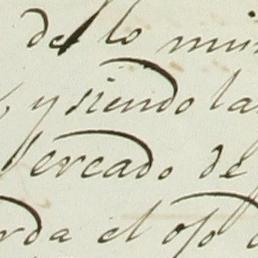 de lo mu
y siendo la
ercado de
rda el oso